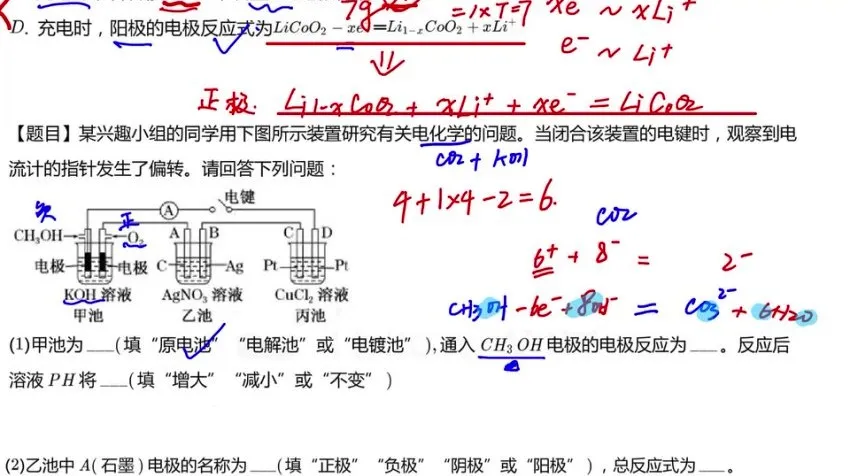 7g =1×7=7 xe⁻ ~ xLi⁺
D. 充电时，阳极的电极反应式为LiCoO₂ − xe⁻=Li₁₋ₓCoO₂ + xLi⁺
e⁻ ~ Li⁺
正极: Li1-xCoO2 + xLi⁺ + xe⁻ = LiCoO2
【题目】某兴趣小组的同学用下图所示装置研究有关电化学的问题。当闭合该装置的电键时，观察到电
流计的指针发生了偏转。请回答下列问题：
CO2 + KOH
4+1×4-2=6.
电键
负 正 A
CH₃OH O₂ A B C D
CO2
6⁺ + 8⁻ = 2⁻
电极 电极 C Ag Pt Pt
KOH 溶液 AgNO₃ 溶液 CuCl₂ 溶液
甲池 乙池 丙池
CH3OH - 6e⁻ + 8OH⁻ = CO3²⁻ + 6H2O
(1)甲池为 ___(填“原电池” “电解池”或“电镀池”),通入 CH₃OH 电极的电极反应为 ___。反应后
溶液 PH 将 ___(填“增大” “减小”或“不变”)
(2)乙池中 A(石墨)电极的名称为 ___(填“正极” “负极” “阴极”或“阳极”)，总反应式为 ___。